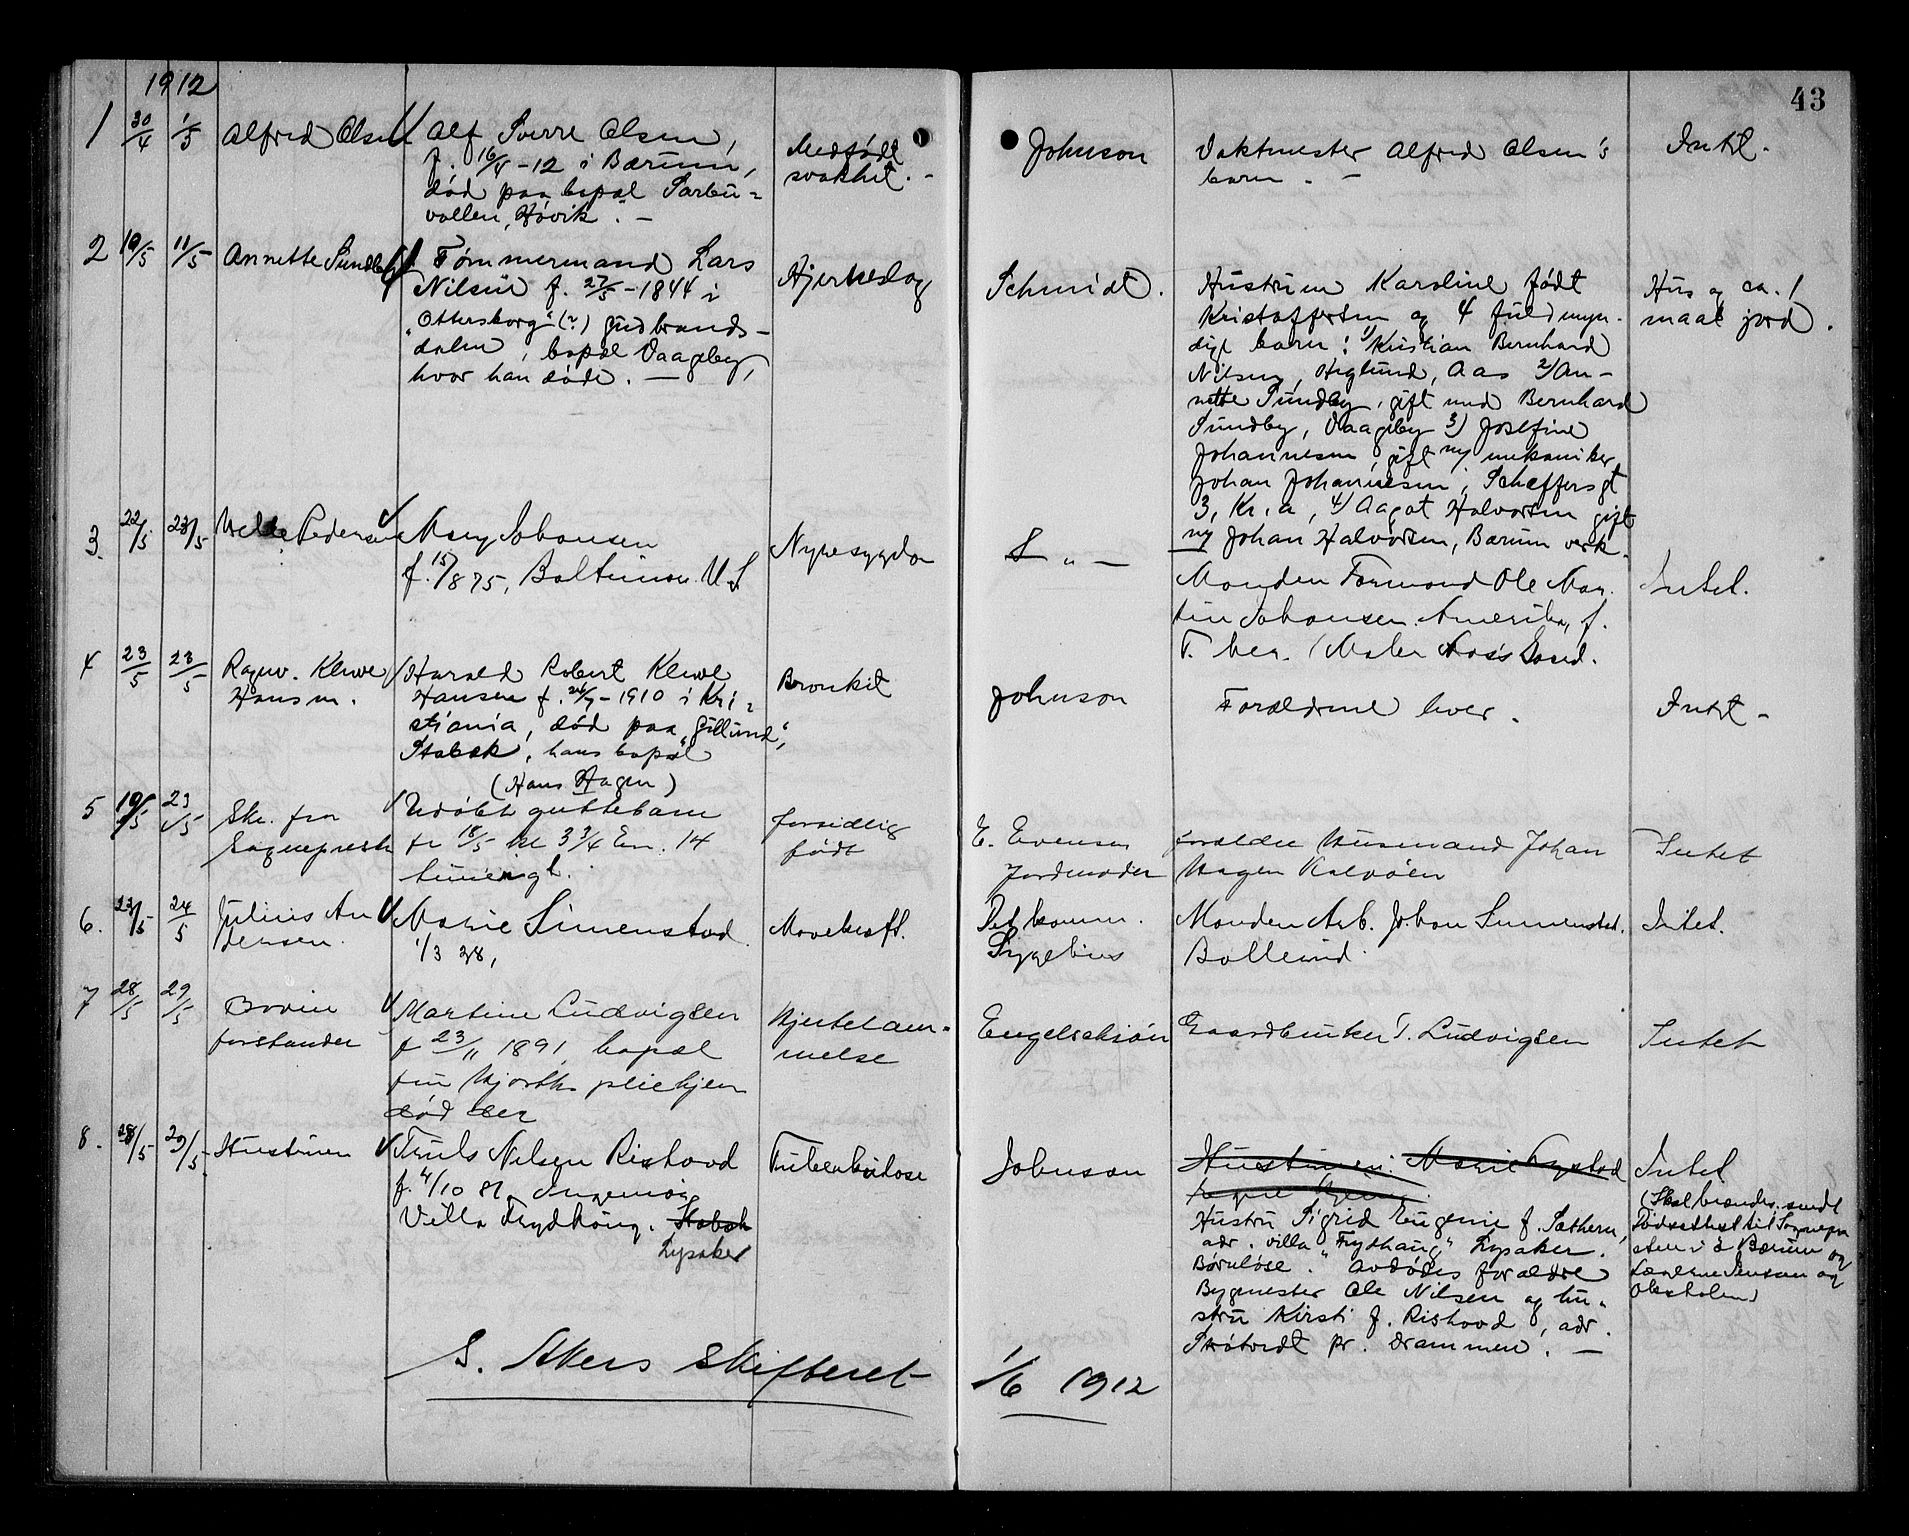 1912
43
1 30/4 1/5 Alfred Olsen
Alf Sverre Olsen,
f. 16/4 - 12 i Bærum,
død paa bopæl Sarbu-
vollen, Høvik. —
Medfødt
svakhet. -
Johnson
Vaktmester Alfred Olsen's
barn. —
Intet.
2 10/5 11/5 Annette Sundby
Tømmermand Lars
Nilsen f. 27/5 - 1844 i
"Ottersborg" (?) Gudbrands-
dalen, bopæl Vaageby,
hvor han døde. —
Hjerneslag
Schmidt.
Hustruen Karoline født
Kristoffersen og 4 fuldmyn-
dige barn: 1/ Kristian Bernhard
Nilsen, Heglund, Aas 2/ An-
nette Sundby, gift med Bernhard
Sundby, Vaageby 3) Josefine
Johannesen, gift m/ mekaniker
Johan Johannesen, Scheffersgt
3, Kr.a, 4) Aagot Halvorsen gift
m/ Johan Halvorsen, Bærum verk.
Hus og ca. 1
maal jord.
3. 22/5 23/5 Pedersen
Mary Johansen
f. 15/8 75, Baltimore U.S
Nyresygdom
S " —
Manden Formand Ole Mar-
tin Johansen. Amerika, f.
T. her.
Intet.
4 23/5 23/5 Ragnv. Klewe
Hansen.
Harald Robert Klewe
Hansen f. 24/7 - 1910 i Kri-
stiania, død paa "Gillund",
Stabæk, hans bopæl
Bronkit
Johnson
Forældrene lever.
Intet -
(Hans Hagen)
5 19/5 23/5 Skr. fra
Sognepresten
Udøbt guttebarn
fr 18/5 kl 3 3/4 Em. 14
timer gl.
forsidlig
født
E. Evensen
Jordmoder
forældre Husmand Johan
Hagen Kalvøen
Intet
6. 23/5 24/5 Julius An
dersen.
Marie Simenstad.
1/3 38,
Mavekræft.
Det komm.
Sygehus
Manden Arb. Johan Simenstad.
Ballerud.
Intet.
7 28/5 29/5
forstander
Martine Ludvigsen
f 23/11 1891, bopæl
fru Hjorths pleiehjem
død der
Hjertelam-
melse
Engelschiøn
Gaardbruker T. Ludvigsen
Intet
8. 28/5 29/5 Hustruen
Truls Nilsen Rishovd
f. 4/10 81, Ingeniør
Villa Frydhaug. Stabæk
Lysaker
Tuberkulose
Johnson
Hustruen: Marie
Hustru Sigrid Eugenie f. Sathern,
adr. villa "Frydhaug" Lysaker.
Barnløse. Avdødes forældre
Bygmester Ole Nilsen og hu-
stru Kirsti f. Rishovd, adr.
Skotvedt pr. Drammen. —
Intet
(Skal brændes, sendt
Dødsattest til Sognepre
sten i Ø Bærum og
Lægerne Jensen og
S. Akers Skifteret
1/6 1912